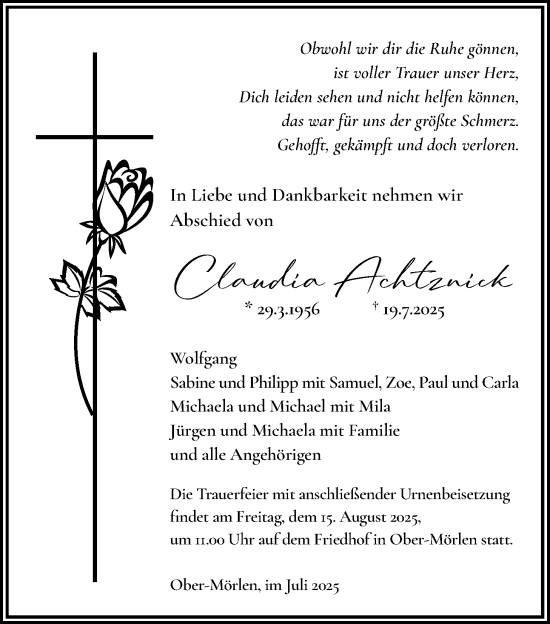 Obwohl wir dir die Ruhe gönnen,
ist voller Trauer unser Herz,
Dich leiden sehen und nicht helfen können,
das war für uns der größte Schmerz.
Gehofft, gekämpft und doch verloren.
In Liebe und Dankbarkeit nehmen wir
Abschied von
Claudia Achtznick
* 29.3.1956 † 19.7.2025
Wolfgang
Sabine und Philipp mit Samuel, Zoe, Paul und Carla
Michaela und Michael mit Mila
Jürgen und Michaela mit Familie
und alle Angehörigen
Die Trauerfeier mit anschließender Urnenbeisetzung
findet am Freitag, dem 15. August 2025,
um 11.00 Uhr auf dem Friedhof in Ober-Mörlen statt.
Ober-Mörlen, im Juli 2025